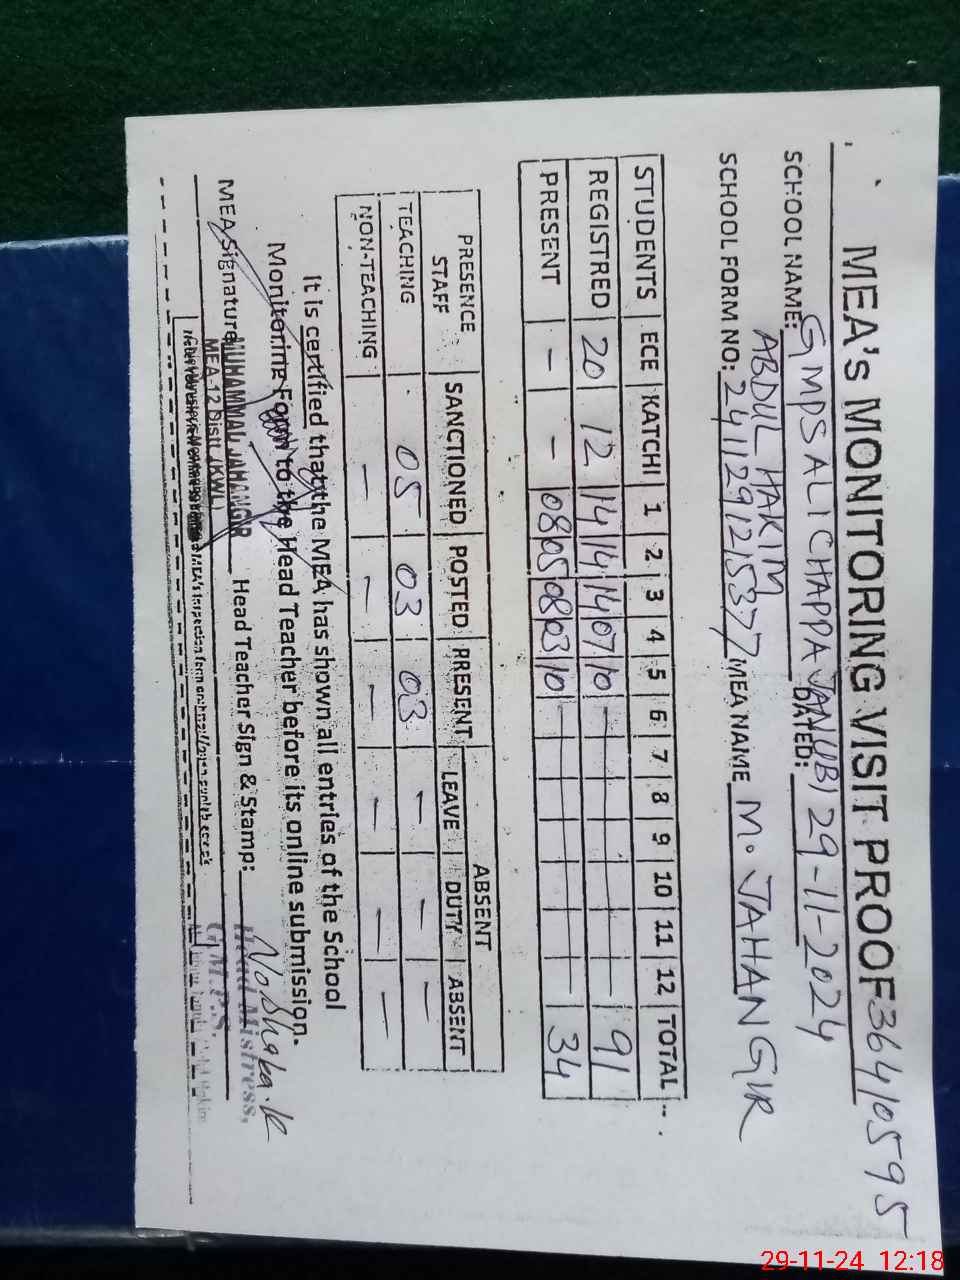 MEA'S MONITORING VISIT PROOF 36410595
SCHOOL NAME: GMPS ALI CHAPPA JANUBI DATED: 29-11-2024
ABDUL HAKIM
SCHOOL FORM NO: 2411291215377 MEA NAME M. JAHANGIR
STUDENTS ECE KATCHI 1 2 3 4 5 6 7 8 9 10 11 12 TOTAL
REGISTRED 20 12 14 14 14 07 10 — — — — — — — 91
PRESENT - - 08 05 08 03 10 — — — — — — — 34
PRESENCE STAFF SANCTIONED POSTED PRESENT ABSENT
LEAVE DUTY ABSENT
TEACHING 05 03 03 — — —
NON-TEACHING — — — — — —
It is certified that the MEA has shown all entries of the School
Monitoring Form to the Head Teacher before its online submission.
MEA Signature MUHAMMAD JAHANGIR Head Teacher Sign & Stamp:
MEA-12 Distt (KWL)
Head Mistress,
G.M.P.S.
29-11-24 12:18